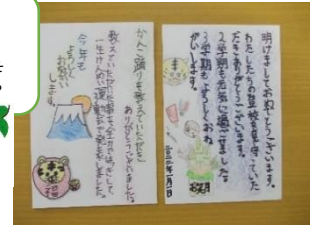 明けましておめでとうございます。
わたしたちの登校を見守っていた
だきありがとうございます。
2学期も元気に過ごせました。
3学期もよろしくおね
がいします。
お正月
かんこ踊りを教えていただき
ありがとうございました。
教えていただいた事を全力で
一生けん命に運動会で発表しました。
今年も
よろしく
お願い
します。
福